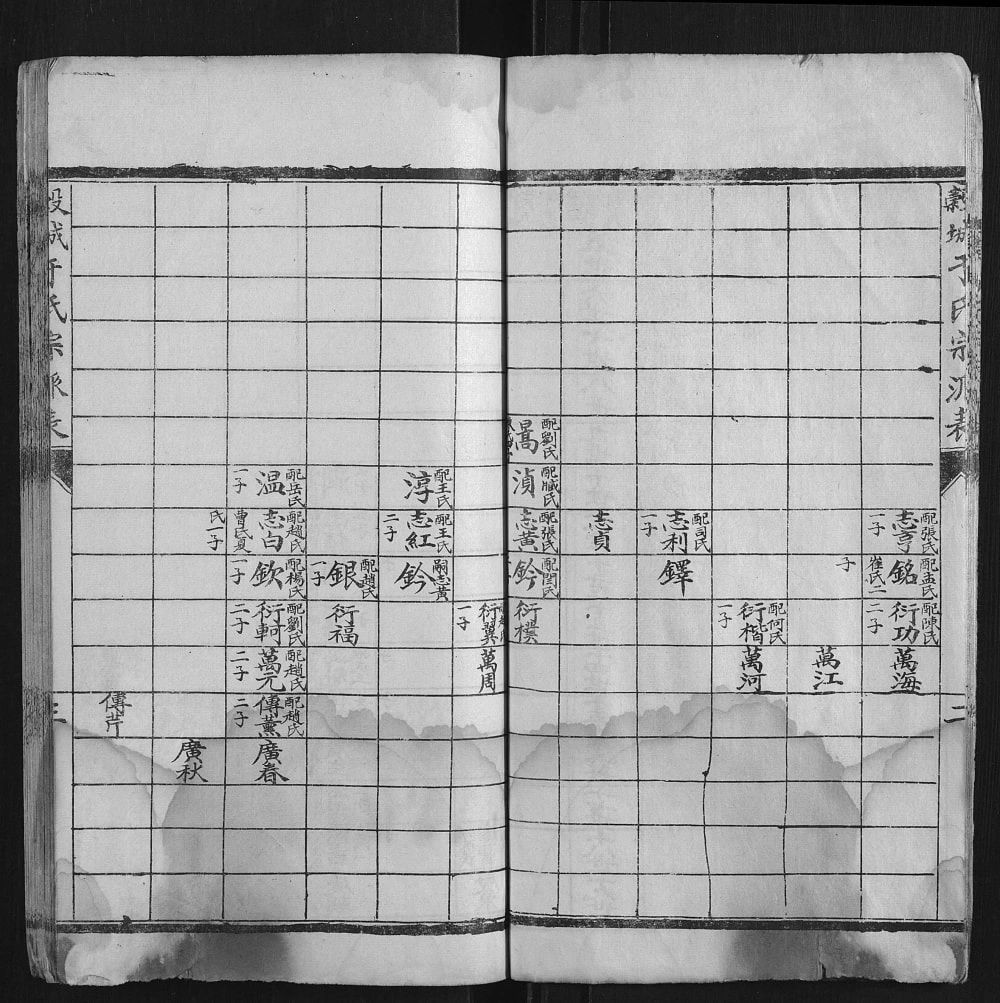 穀城于氏宗派表
二
配張氏
志亨
一子
配孟氏
銘
崔氏二
子
配陳氏
衍功
二子
萬海
萬江
配何氏
衍楷
一子
萬河
配司氏
志利
一子
鐸
志貞
配劉氏
暠
配臧氏
湞
配張氏
志黃
配閆氏
鈐
衍樸
衍翼
一子
萬周
配王氏
淳
配王氏
志紅
二子
嗣志黃
鈐
配趙氏
銀
一子
衍福
配岳氏
温
一子
配趙氏
志白
曹氏夏
氏一子
配楊氏
欽
一子
配劉氏
衍軻
二子
配趙氏
萬元
二子
配趙氏
傳薰
二子
廣春
廣秋
傳芹
穀城于氏宗派表
三